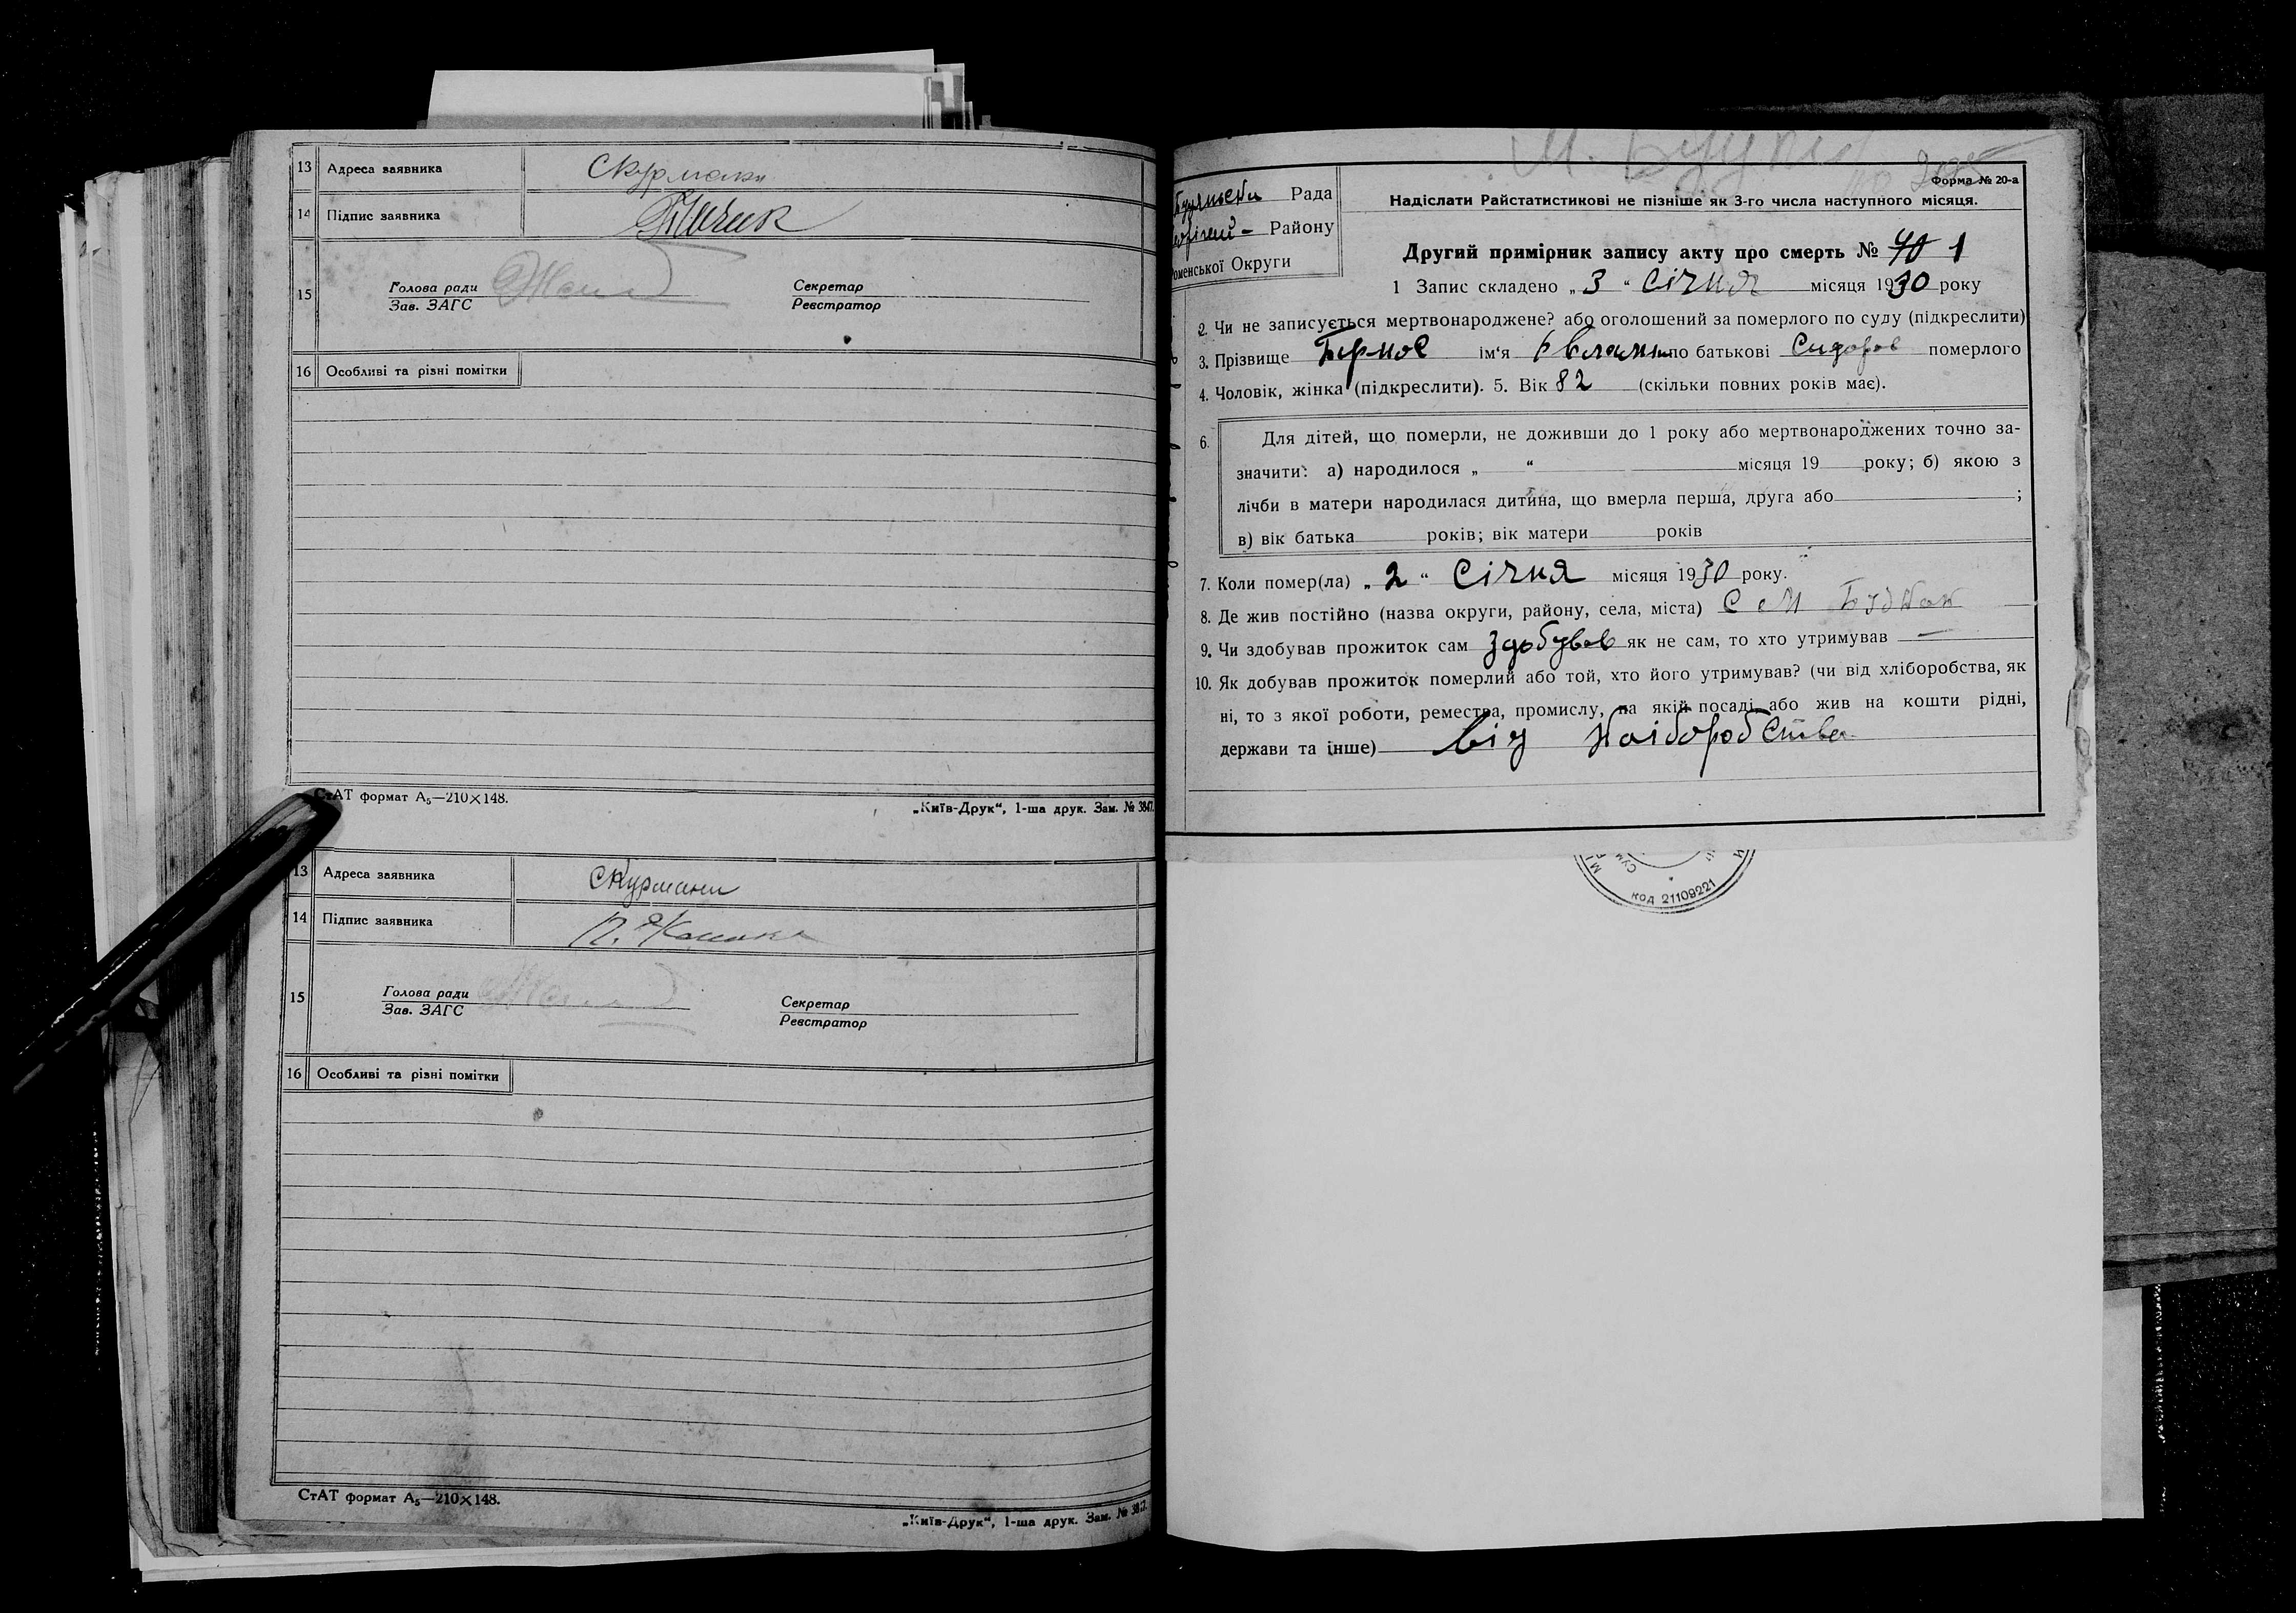 13 Адреса заявника
14 Підпис заявника
15 Голова ради Секретар
Зав. ЗАГС Реєстратор
16 Особливі та різні помітки
СтАТ формат А5—210×148. „Київ-Друк“, 1-ша друк. Зам. № 3847.
13 Адреса заявника Скурмани
14 Підпис заявника
15 Голова ради Секретар
Зав. ЗАГС Реєстратор
16 Особливі та різні помітки
СтАТ формат А5—210×148.
„Київ-Друк“, 1-ша друк. Зам. № 3847.
Рада
Району
Округи
Форма № 20-а
Надіслати Райстатистикові не пізніше як 3-го числа наступного місяця.
Другий примірник запису акту про смерть № 1
1 Запис складено „ 3 “ Січня місяця 1930 року
2. Чи не записується мертвонароджене? або оголошений за померлого по суду (підкреслити)
3. Прізвище ім'я по батькові Сидоров померлого
4. Чоловік, жінка (підкреслити). 5. Вік 82 (скільки повних років має).
6. Для дітей, що померли, не доживши до 1 року або мертвонароджених точно за-
значити: а) народилося „ “ місяця 19 року; б) якою з
лічби в матери народилася дитина, що вмерла перша, друга або ;
в) вік батька років; вік матери років
7. Коли помер(ла) „ 2 “ Січня місяця 1930 року.
8. Де жив постійно (назва округи, району, села, міста) С
9. Чи здобував прожиток сам здобував як не сам, то хто утримував —
10. Як добував прожиток померлий або той, хто його утримував? (чи від хліборобства, як
ні, то з якої роботи, ремества, промислу, на якій посаді або жив на кошти рідні,
держави та інше) від
код 21109221